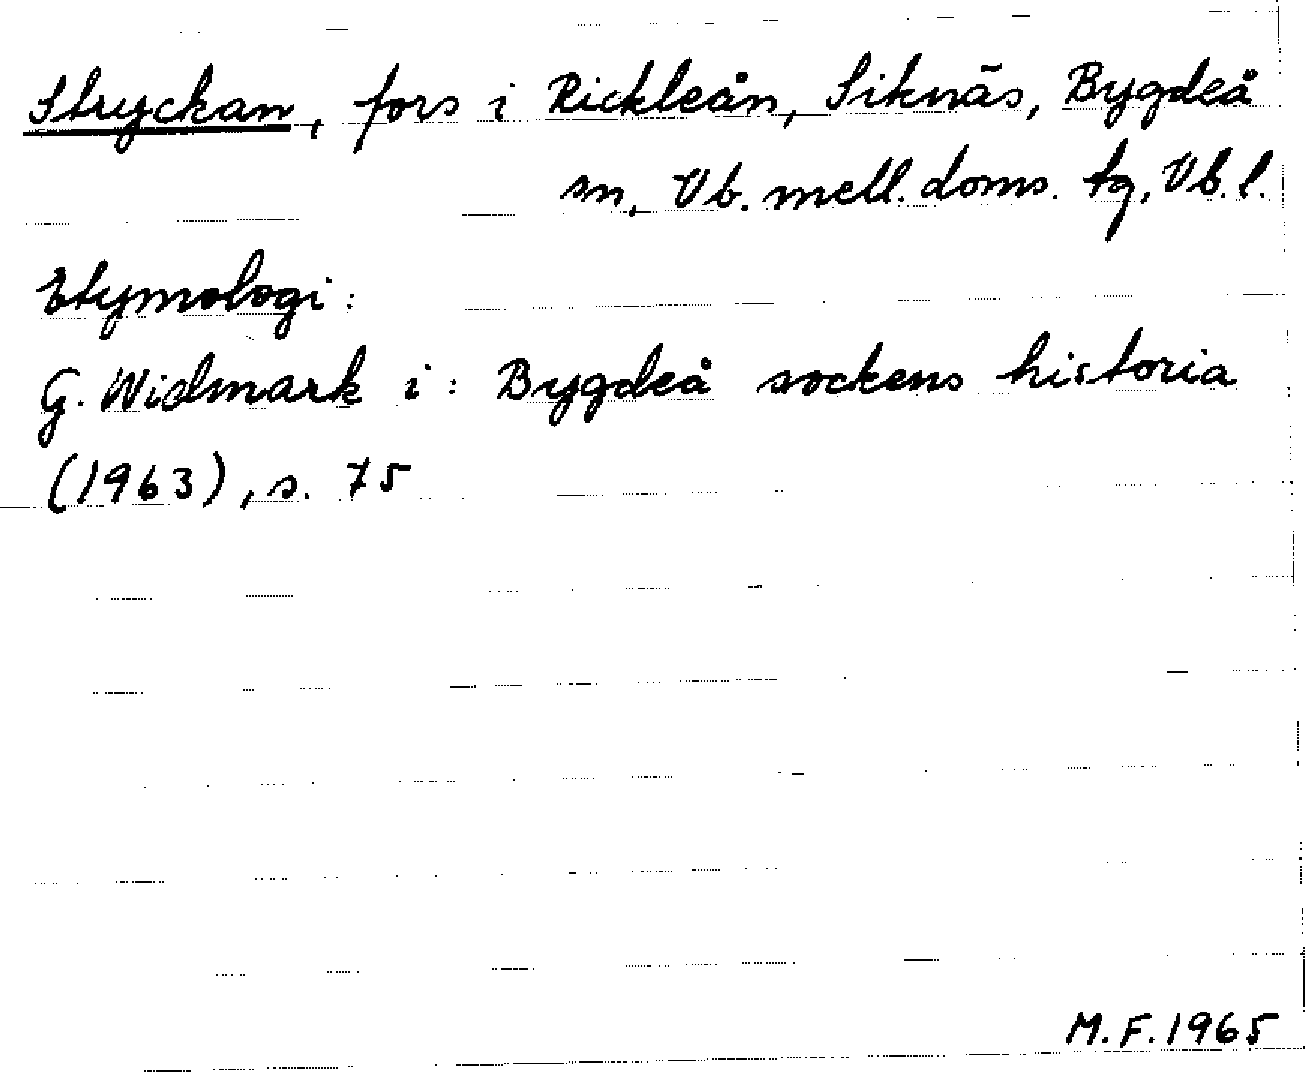 Stryckan, fors i Rickleån, Siknäs, Bygdeå
sn, Vb. mell. doms. tg, Vb. l.
Etymologi:
G. Widmark i: Bygdeå sockens historia
(1963), s. 75
M.F. 1965